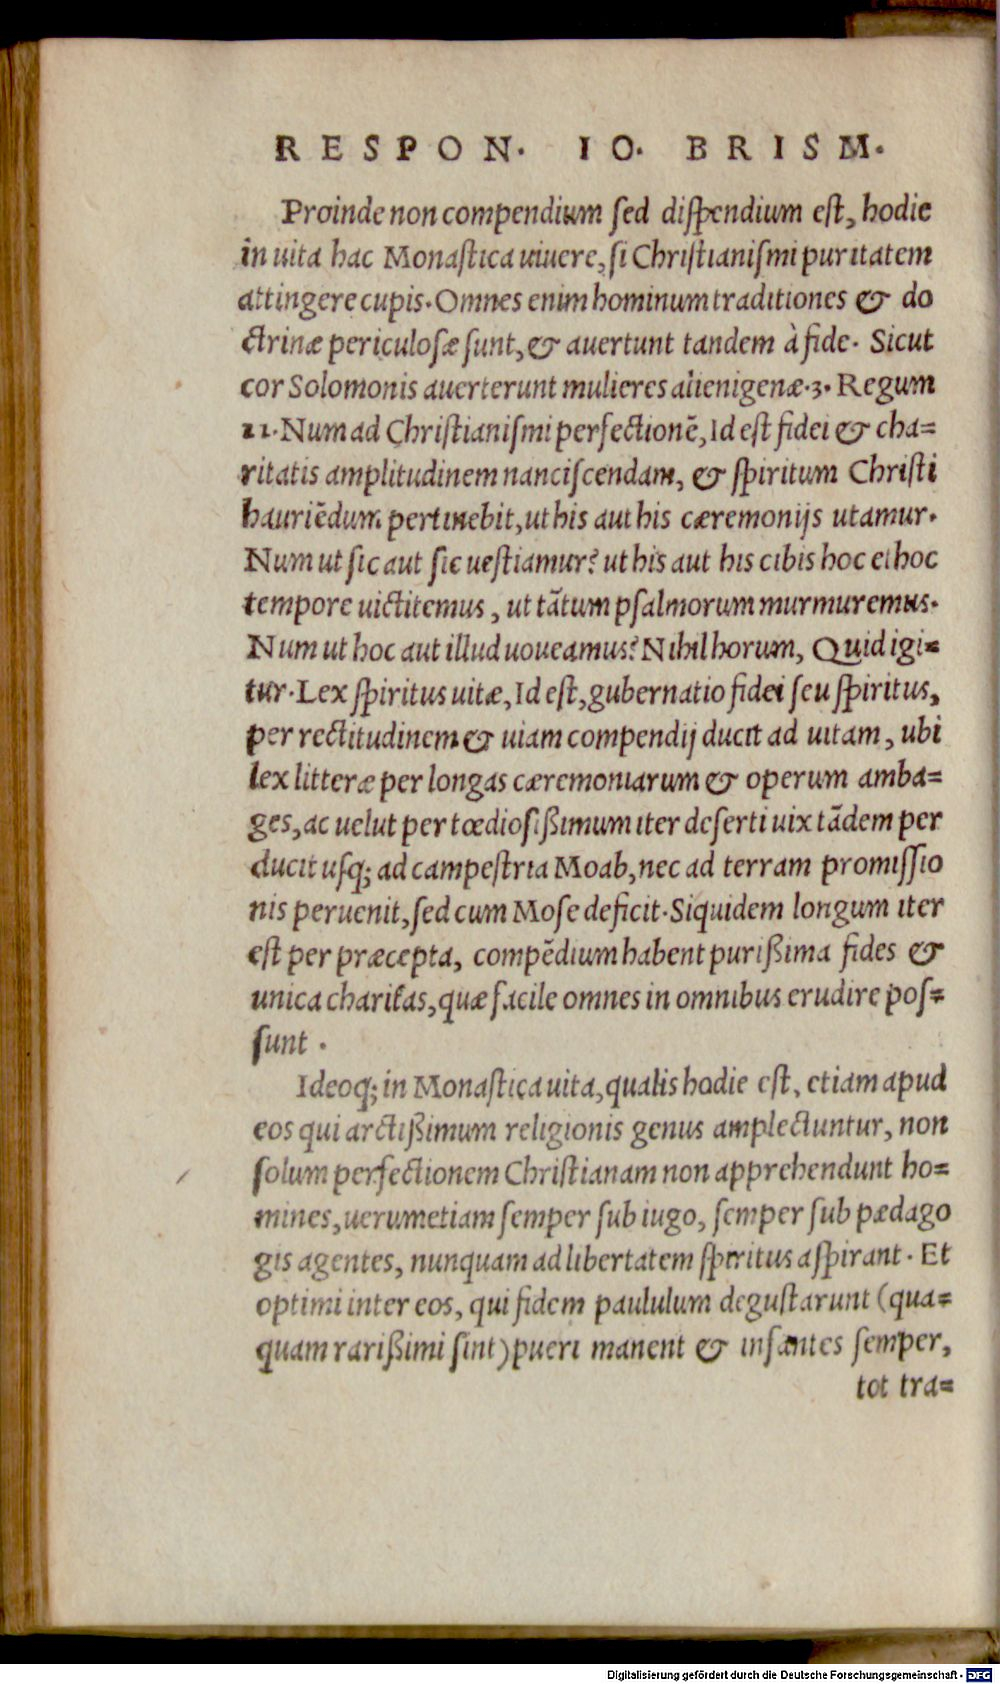 RESPON. IO. BRISM.
Proinde non compendium sed dispendium est, hodie
in uita hac Monastica uiuere, si Christianismi puritatem
attingere cupis. Omnes enim hominum traditiones & do
ctrinæ periculosæ sunt, & auertunt tandem à fide. Sicut
cor Solomonis auerterunt mulieres alienigenæ. 3. Regum
11. Num ad Christianismi perfectionē, Id est fidei & cha=
ritatis amplitudinem nanciscendam, & spiritum Christi
hauriēdum pertinebit, ut his aut his cæremonijs utamur.
Num ut sic aut sic uestiamur? ut his aut his cibis hoc et hoc
tempore uictitemus, ut tātum psalmorum murmuremus.
Num ut hoc aut illud uoueamus? Nihil horum, Quid igi=
tur. Lex spiritus uitæ, Id est, gubernatio fidei seu spiritus,
per rectitudinem & uiam compendij ducit ad uitam, ubi
lex litteræ per longas cæremoniarum & operum amba=
ges, ac uelut per tœdiosißimum iter deserti uix tādem per
ducit usq; ad campestria Moab, nec ad terram promissio
nis peruenit, sed cum Mose deficit. Siquidem longum iter
est per præcepta, compēdium habent purißima fides &
unica charitas, quæ facile omnes in omnibus erudire pos=
sunt.
Ideoq; in Monastica uita, qualis hodie est, etiam apud
eos qui arctißimum religionis genus amplectuntur, non
solum perfectionem Christianam non apprehendunt ho=
mines, uerumetiam semper sub iugo, semper sub pædago
gis agentes, nunquam ad libertatem spiritus aspirant. Et
optimi inter eos, qui fidem paululum degustarunt (qua=
quam rarißimi sint) pueri manent & infantes semper,
tot tra=
Digitalisierung gefördert durch die Deutsche Forschungsgemeinschaft - DFG